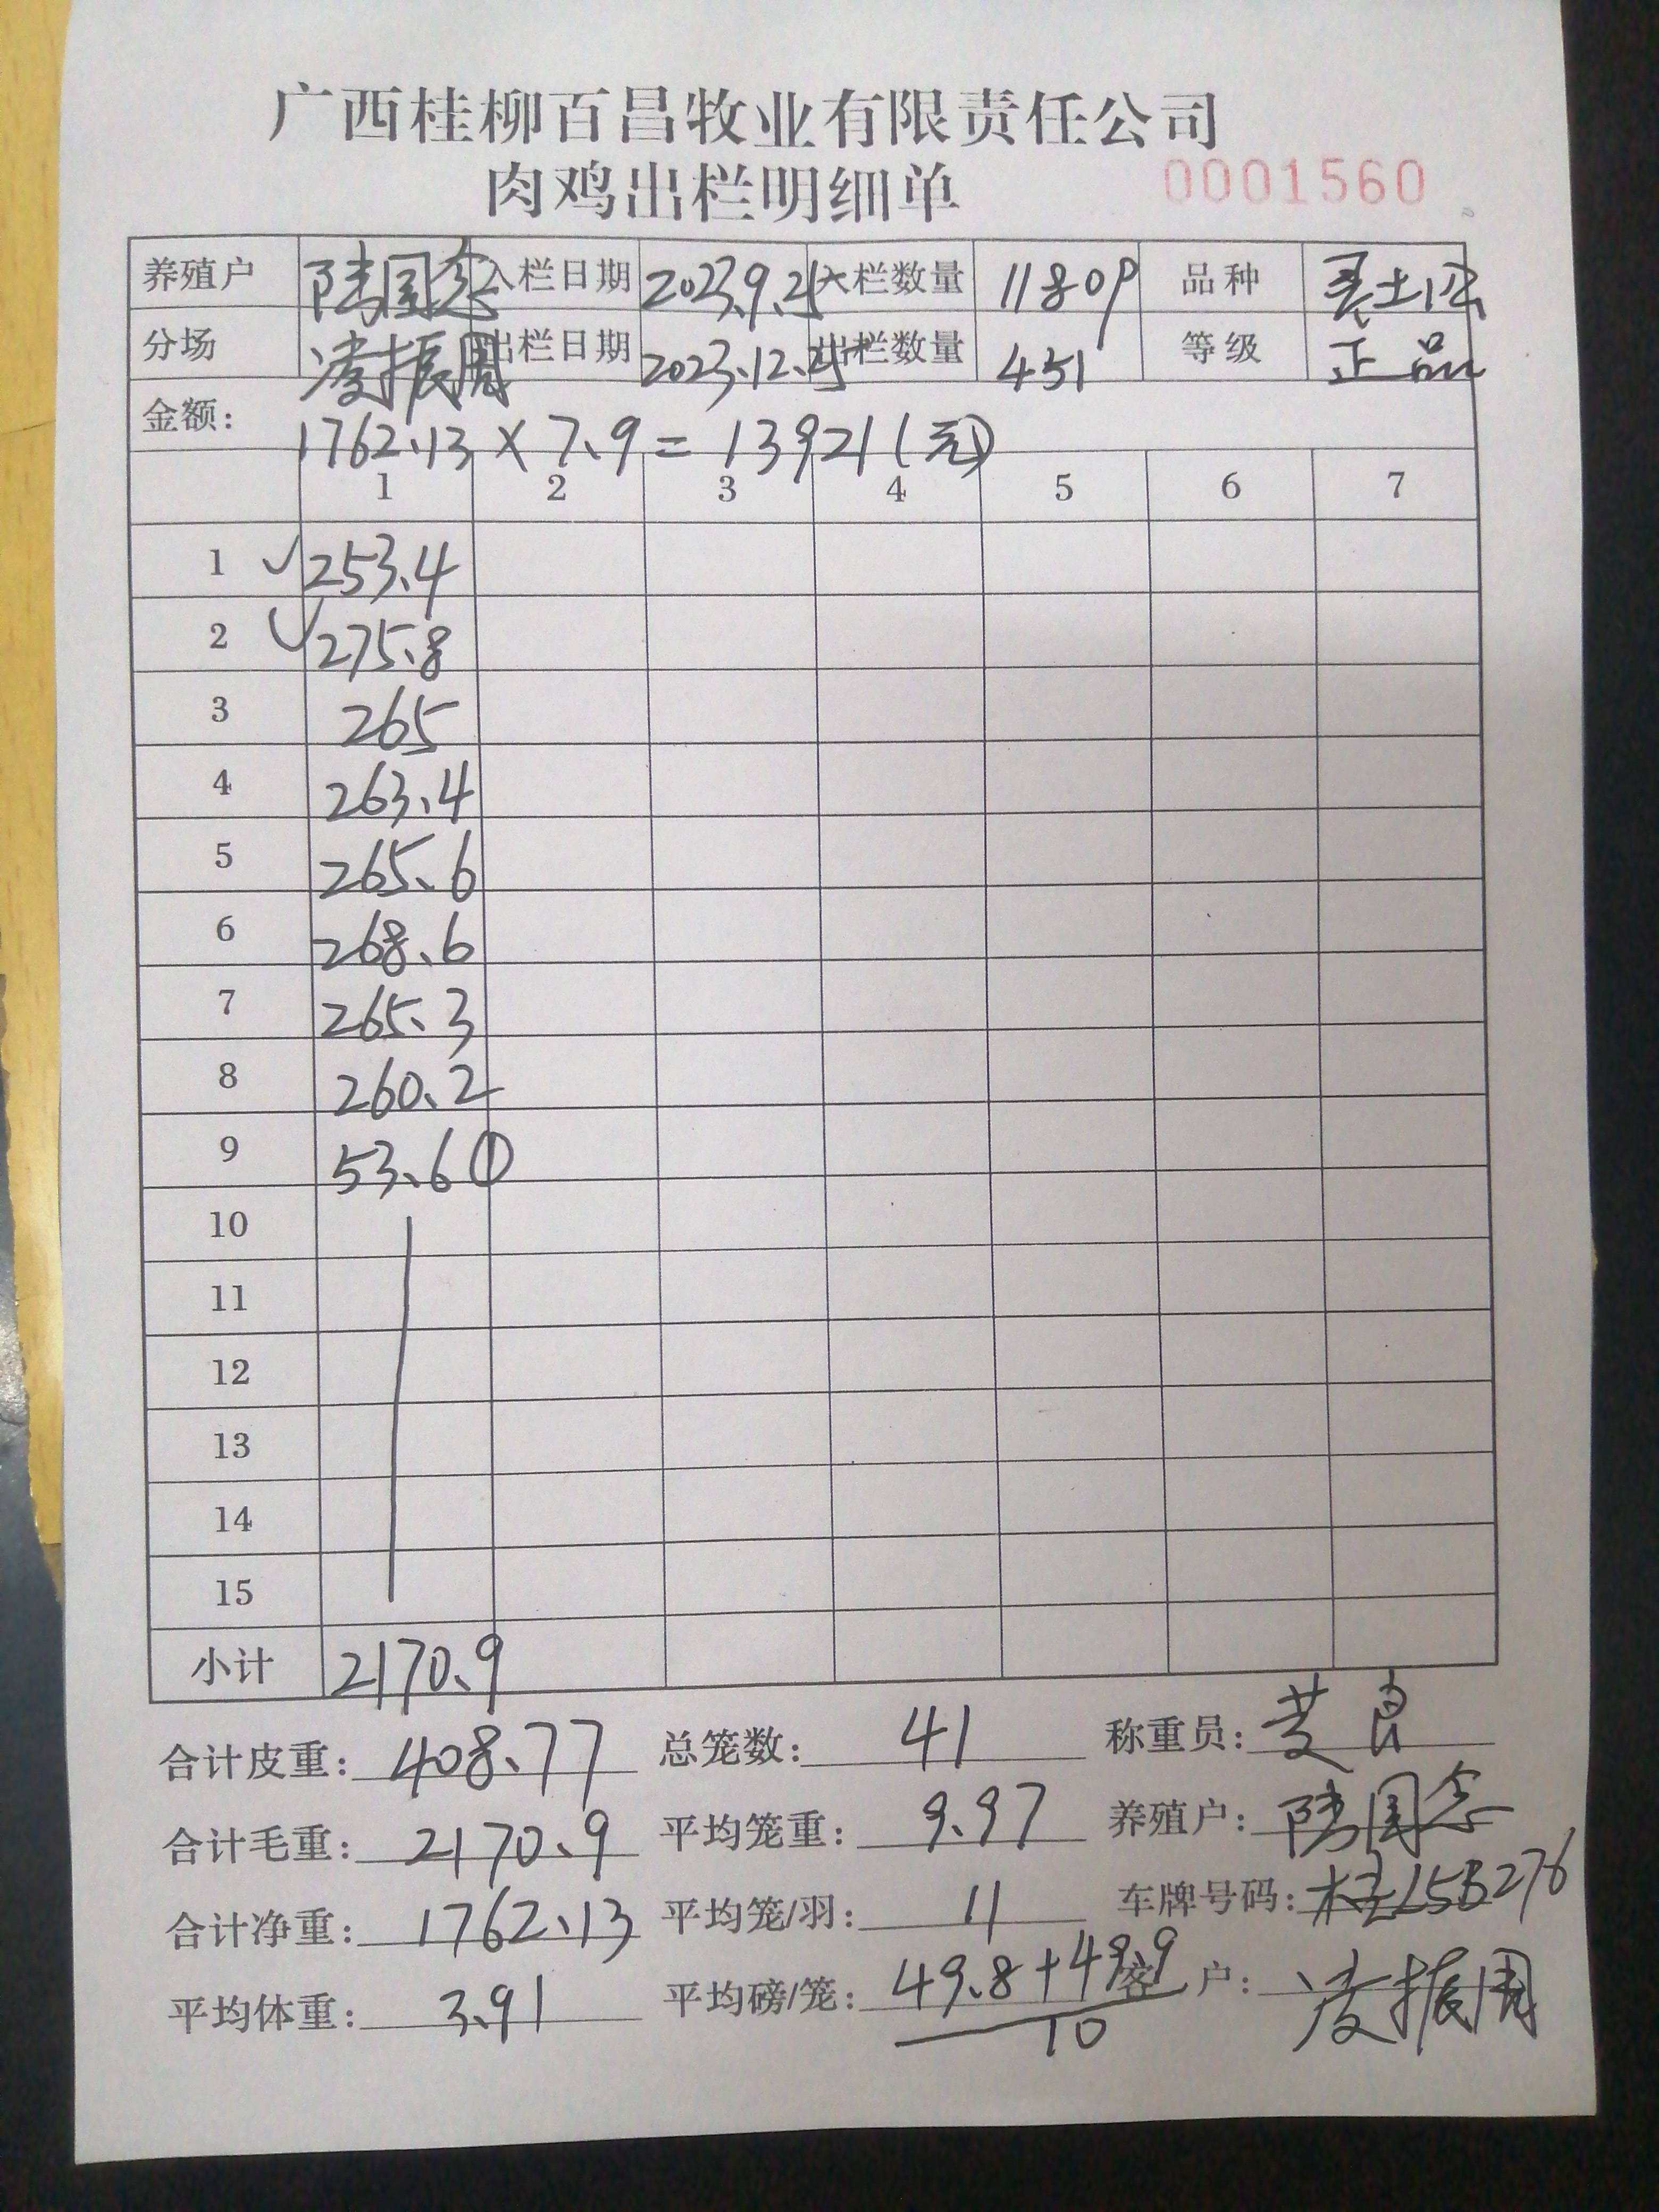 广西桂柳百昌牧业有限责任公司
肉鸡出栏明细单 0001560
养殖户 陆国念 入栏日期 2023.9.25 入栏数量 11809 品种 土
分场 凌振周 出栏日期 2023.12.25 出栏数量 451 等级 正品
金额: 1762.13 × 7.9 = 13921(元)
1 2 3 4 5 6 7
1 ✓253.4
2 ✓275.8
3 265
4 263.4
5 265.6
6 268.6
7 265.3
8 260.2
9 53.6①
10
11
12
13
14
15
小计 2170.9
合计皮重: 408.77 总笼数: 41 称重员: 良
合计毛重: 2170.9 平均笼重: 9.97 养殖户: 陆国念
合计净重: 1762.13 平均笼/羽: 11 车牌号码: 桂L5B276
平均体重: 3.91 平均磅/笼: 49.8+49.9 客户: 凌振周
10